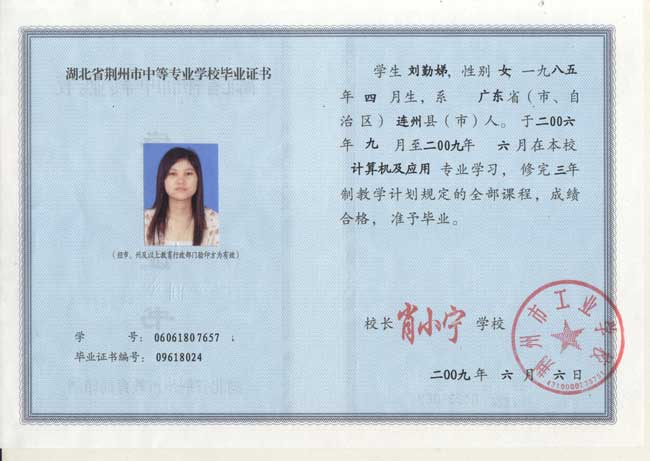 湖北省荆州市中等专业学校毕业证书
(经市、州及以上教育行政部门验印方为有效)
学 号: 06061807657 ;
毕业证书编号: 09618024
学生 刘勤娣, 性别 女 一九八五
年 四 月生, 系 广东省(市、自
治区) 连州县(市)人。于二00六
年 九 月至二00九年 六月在本校
计算机及应用 专业学习, 修完三年
制教学计划规定的全部课程, 成绩
合格, 准予毕业。
校长 肖小宁 学校
荆州市工业学校
二00九年 六 月 六 日